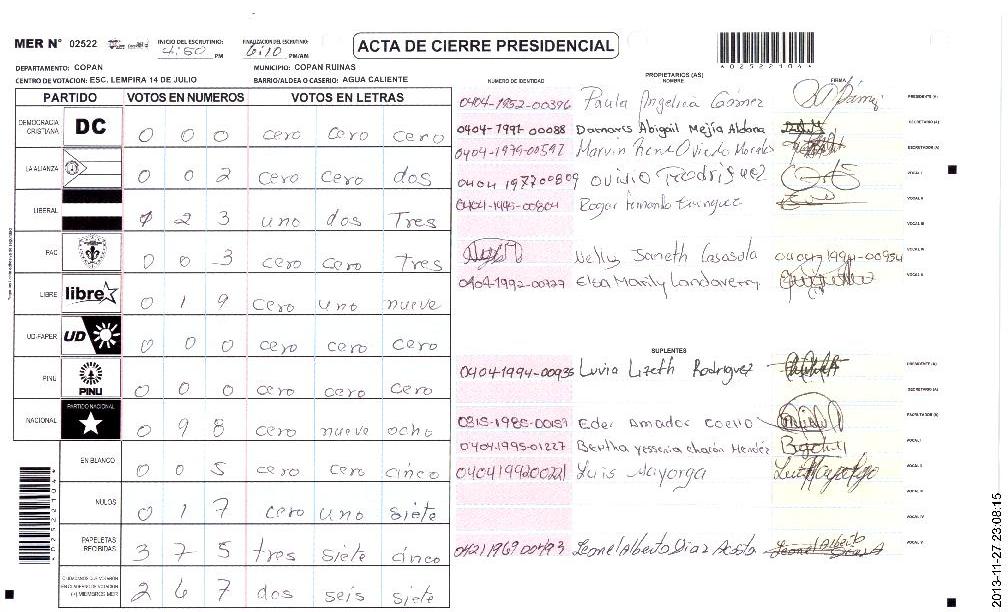 MER N° 02522
INICIO DEL ESCRUTINIO: 4:50 PM
FINALIZACION DEL ESCRUTINIO: 6:10 PM/AM
ACTA DE CIERRE PRESIDENCIAL
4025221044
DEPARTAMENTO: COPAN
MUNICIPIO: COPAN RUINAS
CENTRO DE VOTACION: ESC. LEMPIRA 14 DE JULIO
BARRIO/ALDEA O CASERIO: AGUA CALIENTE
PARTIDO VOTOS EN NUMEROS VOTOS EN LETRAS
DEMOCRACIA CRISTIANA DC 0 0 0 cero cero cero
LA ALIANZA 0 0 2 cero cero dos
LIBERAL 1 2 3 uno dos Tres
PAC 0 0 3 cero cero tres
LIBRE libre 0 1 9 cero uno nueve
UD-FAPER UD 0 0 0 cero cero cero
PINU PINU 0 0 0 cero cero cero
NACIONAL PARTIDO NACIONAL 0 9 8 cero nueve ocho
EN BLANCO 0 0 5 cero cero cinco
NULOS 0 1 7 cero uno siete
PAPELETAS RECIBIDAS 3 7 5 tres siete cinco
CIUDADANOS QUE VOTARON EN CUADERNO DE VOTACION (+) MIEMBROS MER 2 6 7 dos seis siete
4025221044
NÚMERO DE IDENTIDAD PROPIETARIOS (AS) NOMBRE FIRMA
0404-1952-00396 Paula Angelica Gómez PRESIDENTE (A)
0404-1991-00088 Damaris Abigail Mejía Aldana SECRETARIO (A)
0404-1979-00592 Marvin Rene Oviedo Morales ESCRUTADOR (A)
0404 1977 00809 Ovidio Rodriguez VOCAL I
Roger Fernando VOCAL II
VOCAL III
Nelly Janeth Casasola 0404-1994-00954 VOCAL IV
0404-1992-00727 Elsa Marily Landaverry VOCAL V
SUPLENTES
0404-1994-00935 Luvia Lizeth Rodriguez PRESIDENTE (A)
SECRETARIO (A)
Eder Amador Coello ESCRUTADOR (A)
0404-1995-01227 Bertha yessenia chacón Mendéz VOCAL I
Luis Mayorga VOCAL II
VOCAL III
VOCAL IV
0421 1969 00493 Leonel Alberto Diaz Acosta VOCAL V
2013-11-27 23:08:15